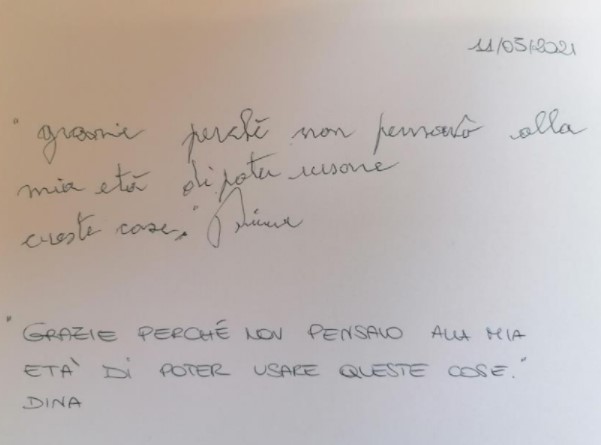 11/05/2021
"grazie perchè non pensavo alla
mia età di poter usare
queste cose." Dina
"GRAZIE PERCHÉ NON PENSAVO ALLA MIA
ETA' DI POTER USARE QUESTE COSE."
DINA